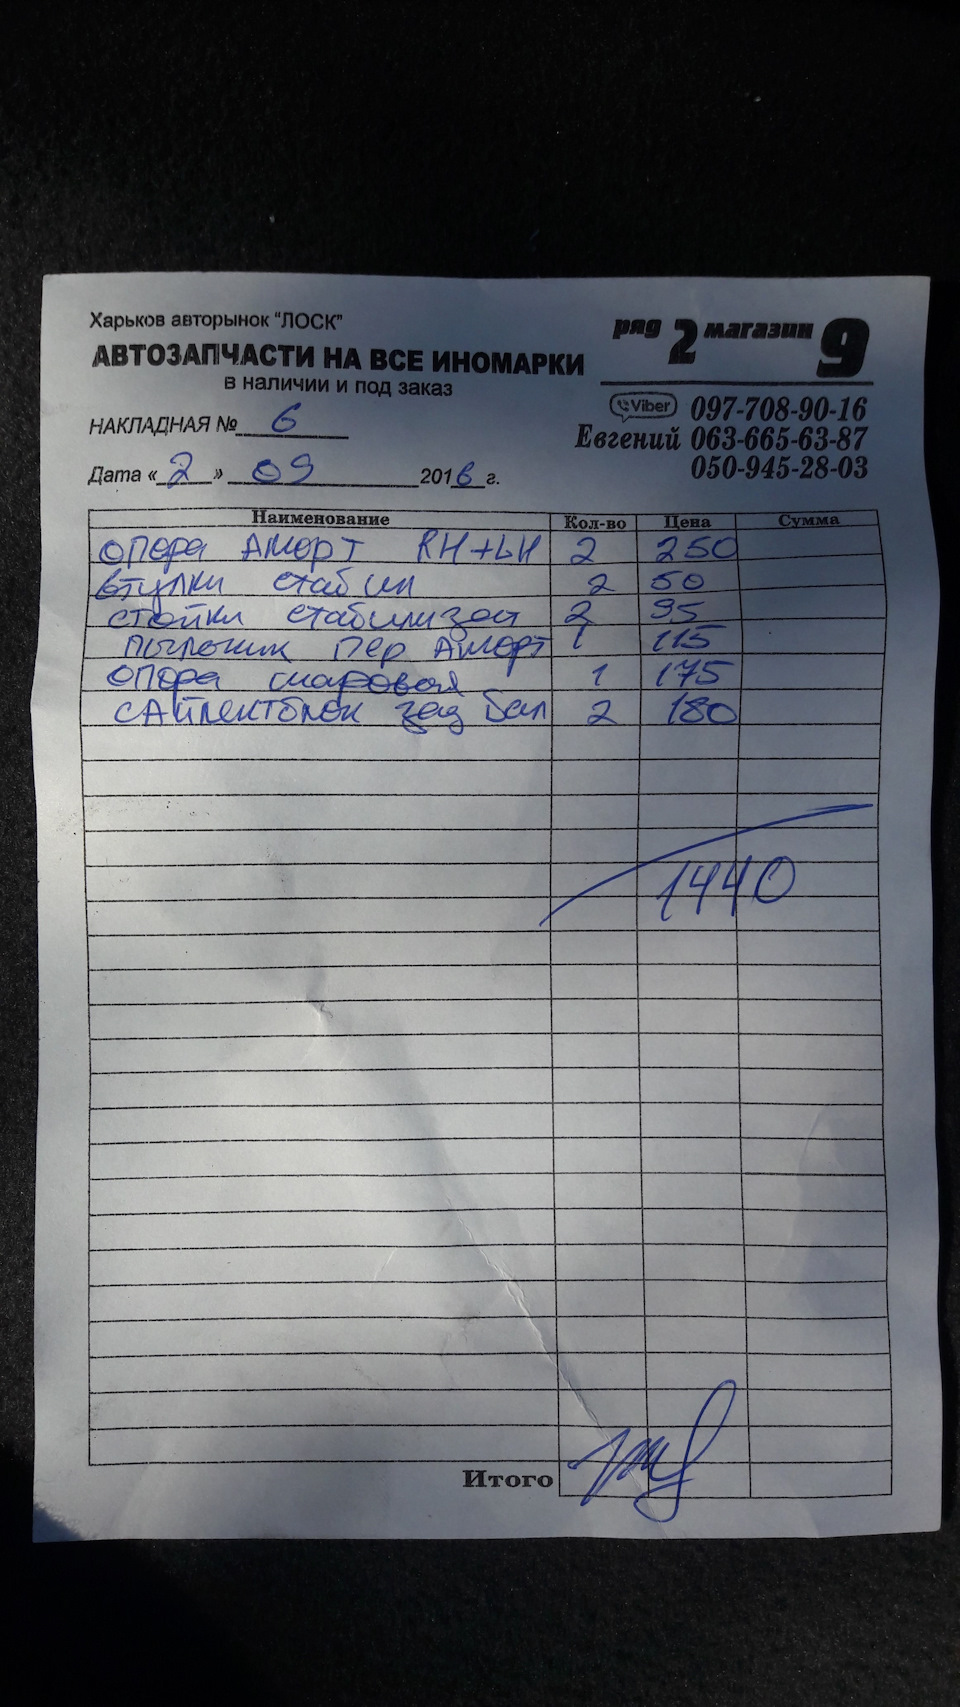 Харьков авторынок "ЛОСК"
АВТОЗАПЧАСТИ НА ВСЕ ИНОМАРКИ
в наличии и под заказ
ряд 2 магазин 9
Viber 097-708-90-16
Евгений 063-665-63-87
050-945-28-03
НАКЛАДНАЯ № 6
Дата « 2 » 09 2016 г.
Наименование Кол-во Цена Сумма
ОПОРА АМОРТ RH+LH 2 250
втулки стабил 2 50
стойки стабилизат 2 95
пыльник пер АМОРТ 1 115
опора шаровая 1 175
САЙЛЕНТБЛОК зад бал 2 180
1440
Итого